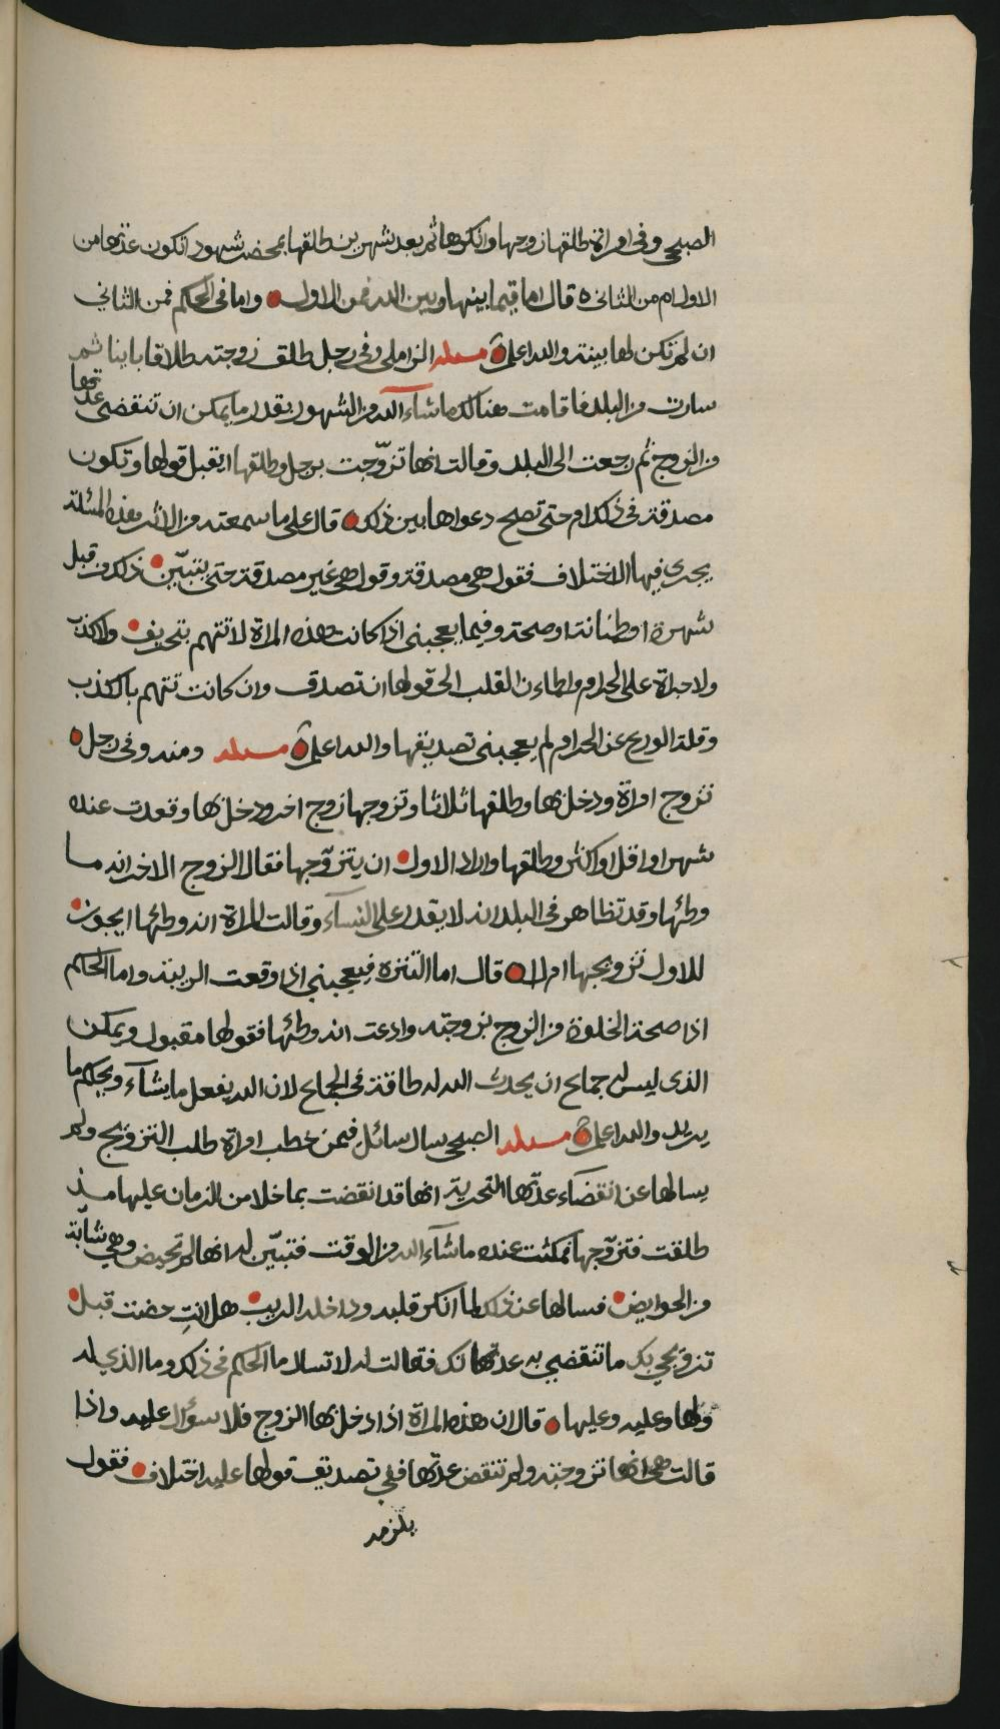 الصبحي وفي امراة طلقها زوجها وانكرها ثم بعد شهرين طلقها بمحضر شهود اتكون عدتها من
الاول ام من الثاني ه قال اما فيما بينها وبين الله فمن الاول واما في الحكم فمن الثاني
ان لم تكن لها بينة والله اعلم مسئلة الزاملي وفي رجل طلق زوجته طلاقا باينا ثم
سارت من البلد فاقامت هنالك ما شآء الله من الشهور بقدر ما يمكن ان تنقضي عدتها
من الزوج ثم رجعت الى البلد وقالت انها تزوّجت برجل وطلقها ايقبل قولها وتكون
مصدقة في ذلك ام حتى تصح دعواها بين ذلك قال على ما سمعته من الاثر وهذه المسئلة
يجري فيها الاختلاف فقول هي مصدقة وقول هي غير مصدقة حتى يتبيّن ذلك من قبل
شهرة او طمانة او صحة وفيما يعجبني اذا كانت هذه المراة لا تتهم بتحريف ولا كذب
ولا جراة على الحرام واطماءن القلب الى قولها ان تصدق وان كانت تتهم بالكذب
وقلة الورع عن الحرام لم يعجبني تصديقها والله اعلم مسئلة ومنه وفي رجل
تزوج امراة ودخل بها وطلقها ثلاثا وتزوجها زوج اخر ودخل بها وقعدت عنده
شهرا او اقل او اكثر وطلقها واراد الاول ان يتزوّجها فقال الزوج الاخر انه ما
وطئها وقد تظاهر في البلد انه لا يقدر على النسآء وقالت المراة انه وطئها ايجوز
للاول تزويجها ام لا قال اما التنزه فيعجبني اذا وقعت الريبة واما الحكم
اذا صحة الخلوة من الزوج بزوجته وادعت انه وطئها فقولها مقبول ويمكن
الذي ليس له جماع ان يحدث الله له طاقة في الجماع لان الله يفعل ما يشآء ويحكم ما
يريد والله اعلم مسئلة الصبحي سال سائل فيمن خطب امراة طلب التزويج ولم
يسالها عن انقضاء عدتها التحرية انها قد انقضت بما خلا من الزمان عليها منذ
طلقت فتزوّجها فمكثت عنده ما شآء الله من الوقت فتبيّن له انها لم تحيض وهي شابة
من الحوايض فسالها عن ذلك لما انكر قلبه وداخله الريب هل انتِ حضت قبل
تزويجي بك ما تنقضي به عدتك فقالت له لا تسال ما الحكم في ذلك وما الذي له
ولها وعليه وعليها قال ان هذه المراة اذا دخل بها الزوج فلا سؤال عليه واذا
قالت هي انها تزوجته ولم تنقض عدتها ففي تصديق قولها عليه اختلاف فقول
يلزمه